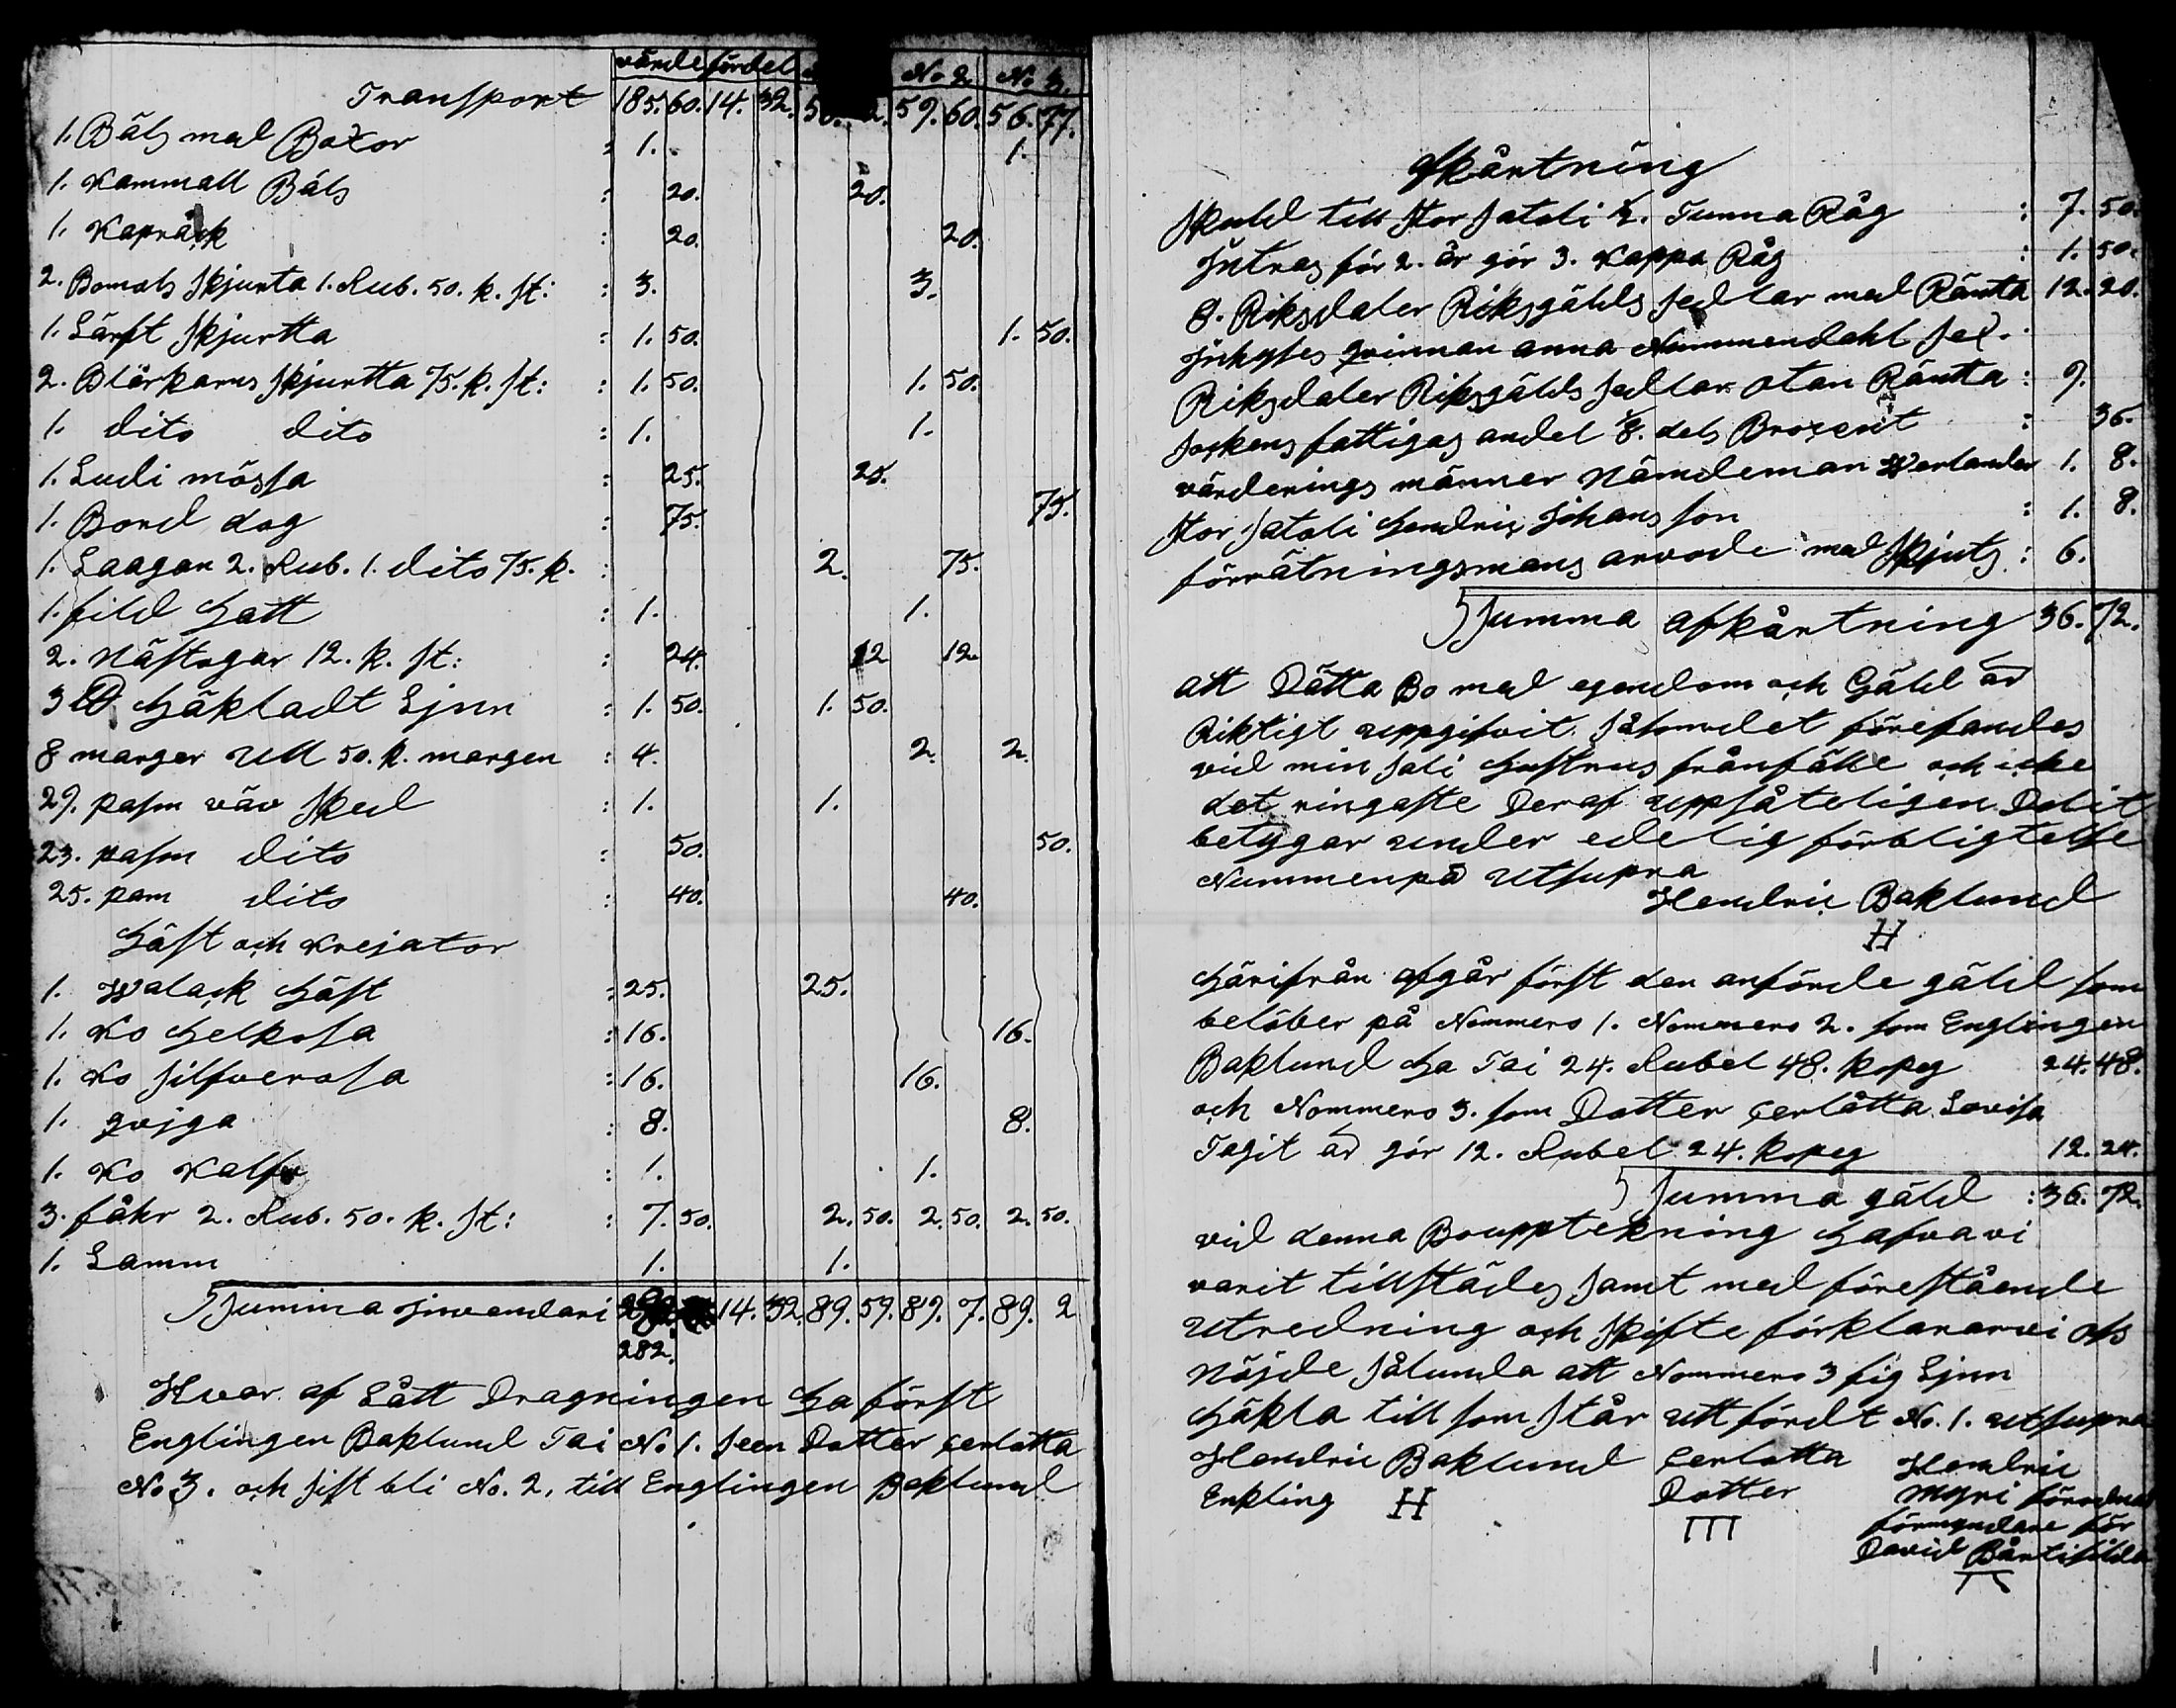 värde fördel No 2 No 3.
Transport 185. 60. 14. 32. 50. 2. 59. 60. 56. 77.
1. Bälß med Boxor : 1. 1.
1. Kammall Bälß : 20. 20.
1. Kapråck : 20. 20.
2. Bomols skjurta 1. Rub. 50. k. st: : 3. 3.
1. Lärft skjurtta : 1. 50. 1. 50.
2. Blårkarns skjurtta 75. k. st: : 1. 50. 1. 50.
1. dito dito : 1. 1.
1. Ludi mössa : 25. 25.
1. Bord dog : 75. 75.
1. Laagan 2. Rub. 1. dito 75. k. : 2. 75.
1. fild Hatt : 1. 1.
2. Nästogar 12. k. st: : 24. 12 12
3 ℔ Häkladt Ljnn : 1. 50. 1. 50.
8 marger Ull 50. k. margen : 4. 2. 2.
29. pasm väv sked : 1. 1.
23. pasm dito : 50. 50.
25. pam dito : 40. 40.
Häst och Krejator
1. Walack Häst : 25. 25.
1. Ko Helkosa : 16. 16.
1. Ko silfverosa : 16. 16.
1. qvjga : 8. 8.
1. Ko Kalfv : 1. 1.
3. fåhr 2. Rub. 50. k. st: : 7. 50. 2. 50. 2. 50. 2. 50.
1. Lamm 1. 1.
Summa Jnvendari 14. 32. 89. 59. 89. 7. 89. 2
282.
Hvar af Lått Dragningen Ha först
Englingen Baklund Tai No 1. seen Dotter Cerlotta
No 3. och sist bli No. 2, till Englingen Baklund
Afkårtning
Skuld till Stor satali ½. Tunna Råg : 7. 50.
Jntras för 2. år gör 3. Kappa Råg : 1. 50.
8. Riksdaler Riksgälds sedlar med Ränta 12. 20.
Jnhyses qvinnan anna Nummendahl sex.
Riksdaler Riksgälds sedlar otan Ränta : 9.
Sockens fattigas andel ⅛. dels Brocent : 36.
värderings männer Nämdeman Werlander 1. 8.
Stor satali Hendric Johansson : 1. 8.
förrätningsmans arvode med skjuts : 6.
Summa afkårtning 36. 72.
att Dätta Bo med egendom och Gäld är
Riktigt uppgifvit såsomdet förefandes
vid min sali Hustrus frånfälle och icke
det ringaste Deraf uppsåteligen Dolit
betygar under edelig förbligtelse
Nummenpä utsupra
Hendric Baklund
H
Härifrån afgår först den anförde gäld som
belöber på Nommero 1. Nommero 2. som Englingen
Baklund Ha Tai 24. Rubel 48. kopeg 24. 48.
och Nommero 3. som Dotter Cerlåtta Lovisa
Tagit är gör 12. Rubel 24. kopeg 12. 24.
Summa gäld : 36. 72.
vid denna Bouppteckning Hafva vi
varit tillstädes samt med förestående
utredning och skifte förklararvi oss
nöjde sålunda att Nommero 3 fig Ljnn
Häkla till som står utt fördt No. 1. utsupra
Hendric Baklund Cerlotta Hendric
Enkling H Dotter Myri förordnad
förmyndare för
David